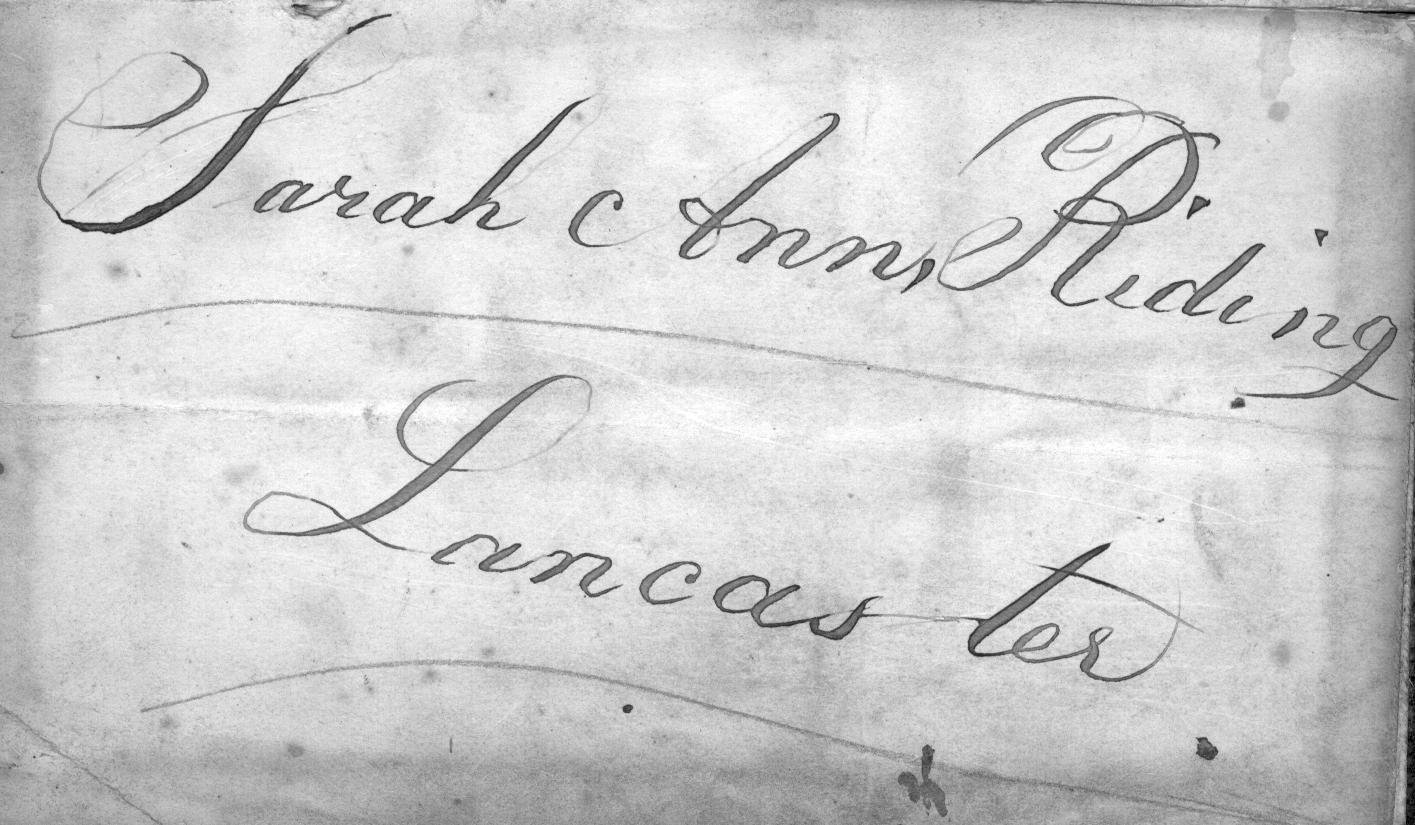 Sarah Ann, Riding
Lancaster